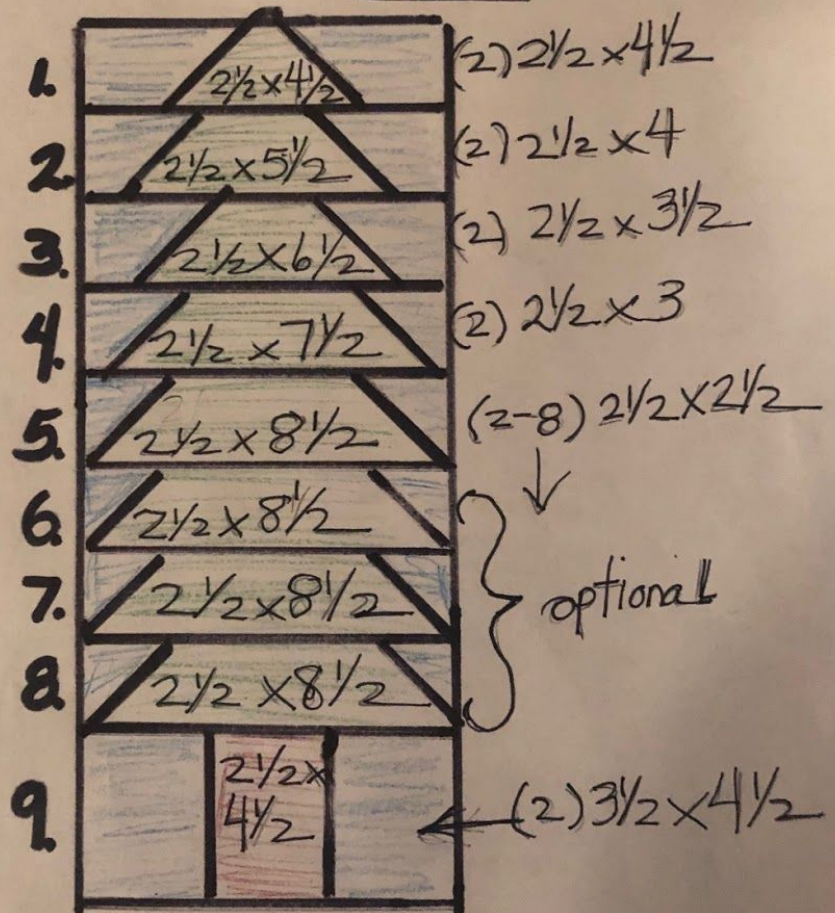 1. 2½ x 4½ (2) 2½ x 4½
2. 2½ x 5½ (2) 2½ x 4
3. 2½ x 6½ (2) 2½ x 3½
4. 2½ x 7½ (2) 2½ x 3
5. 2½ x 8½ (2-8) 2½ x 2½
6. 2½ x 8½
7. 2½ x 8½ optional
8. 2½ x 8½
9. 2½ x
4½ (2) 3½ x 4½